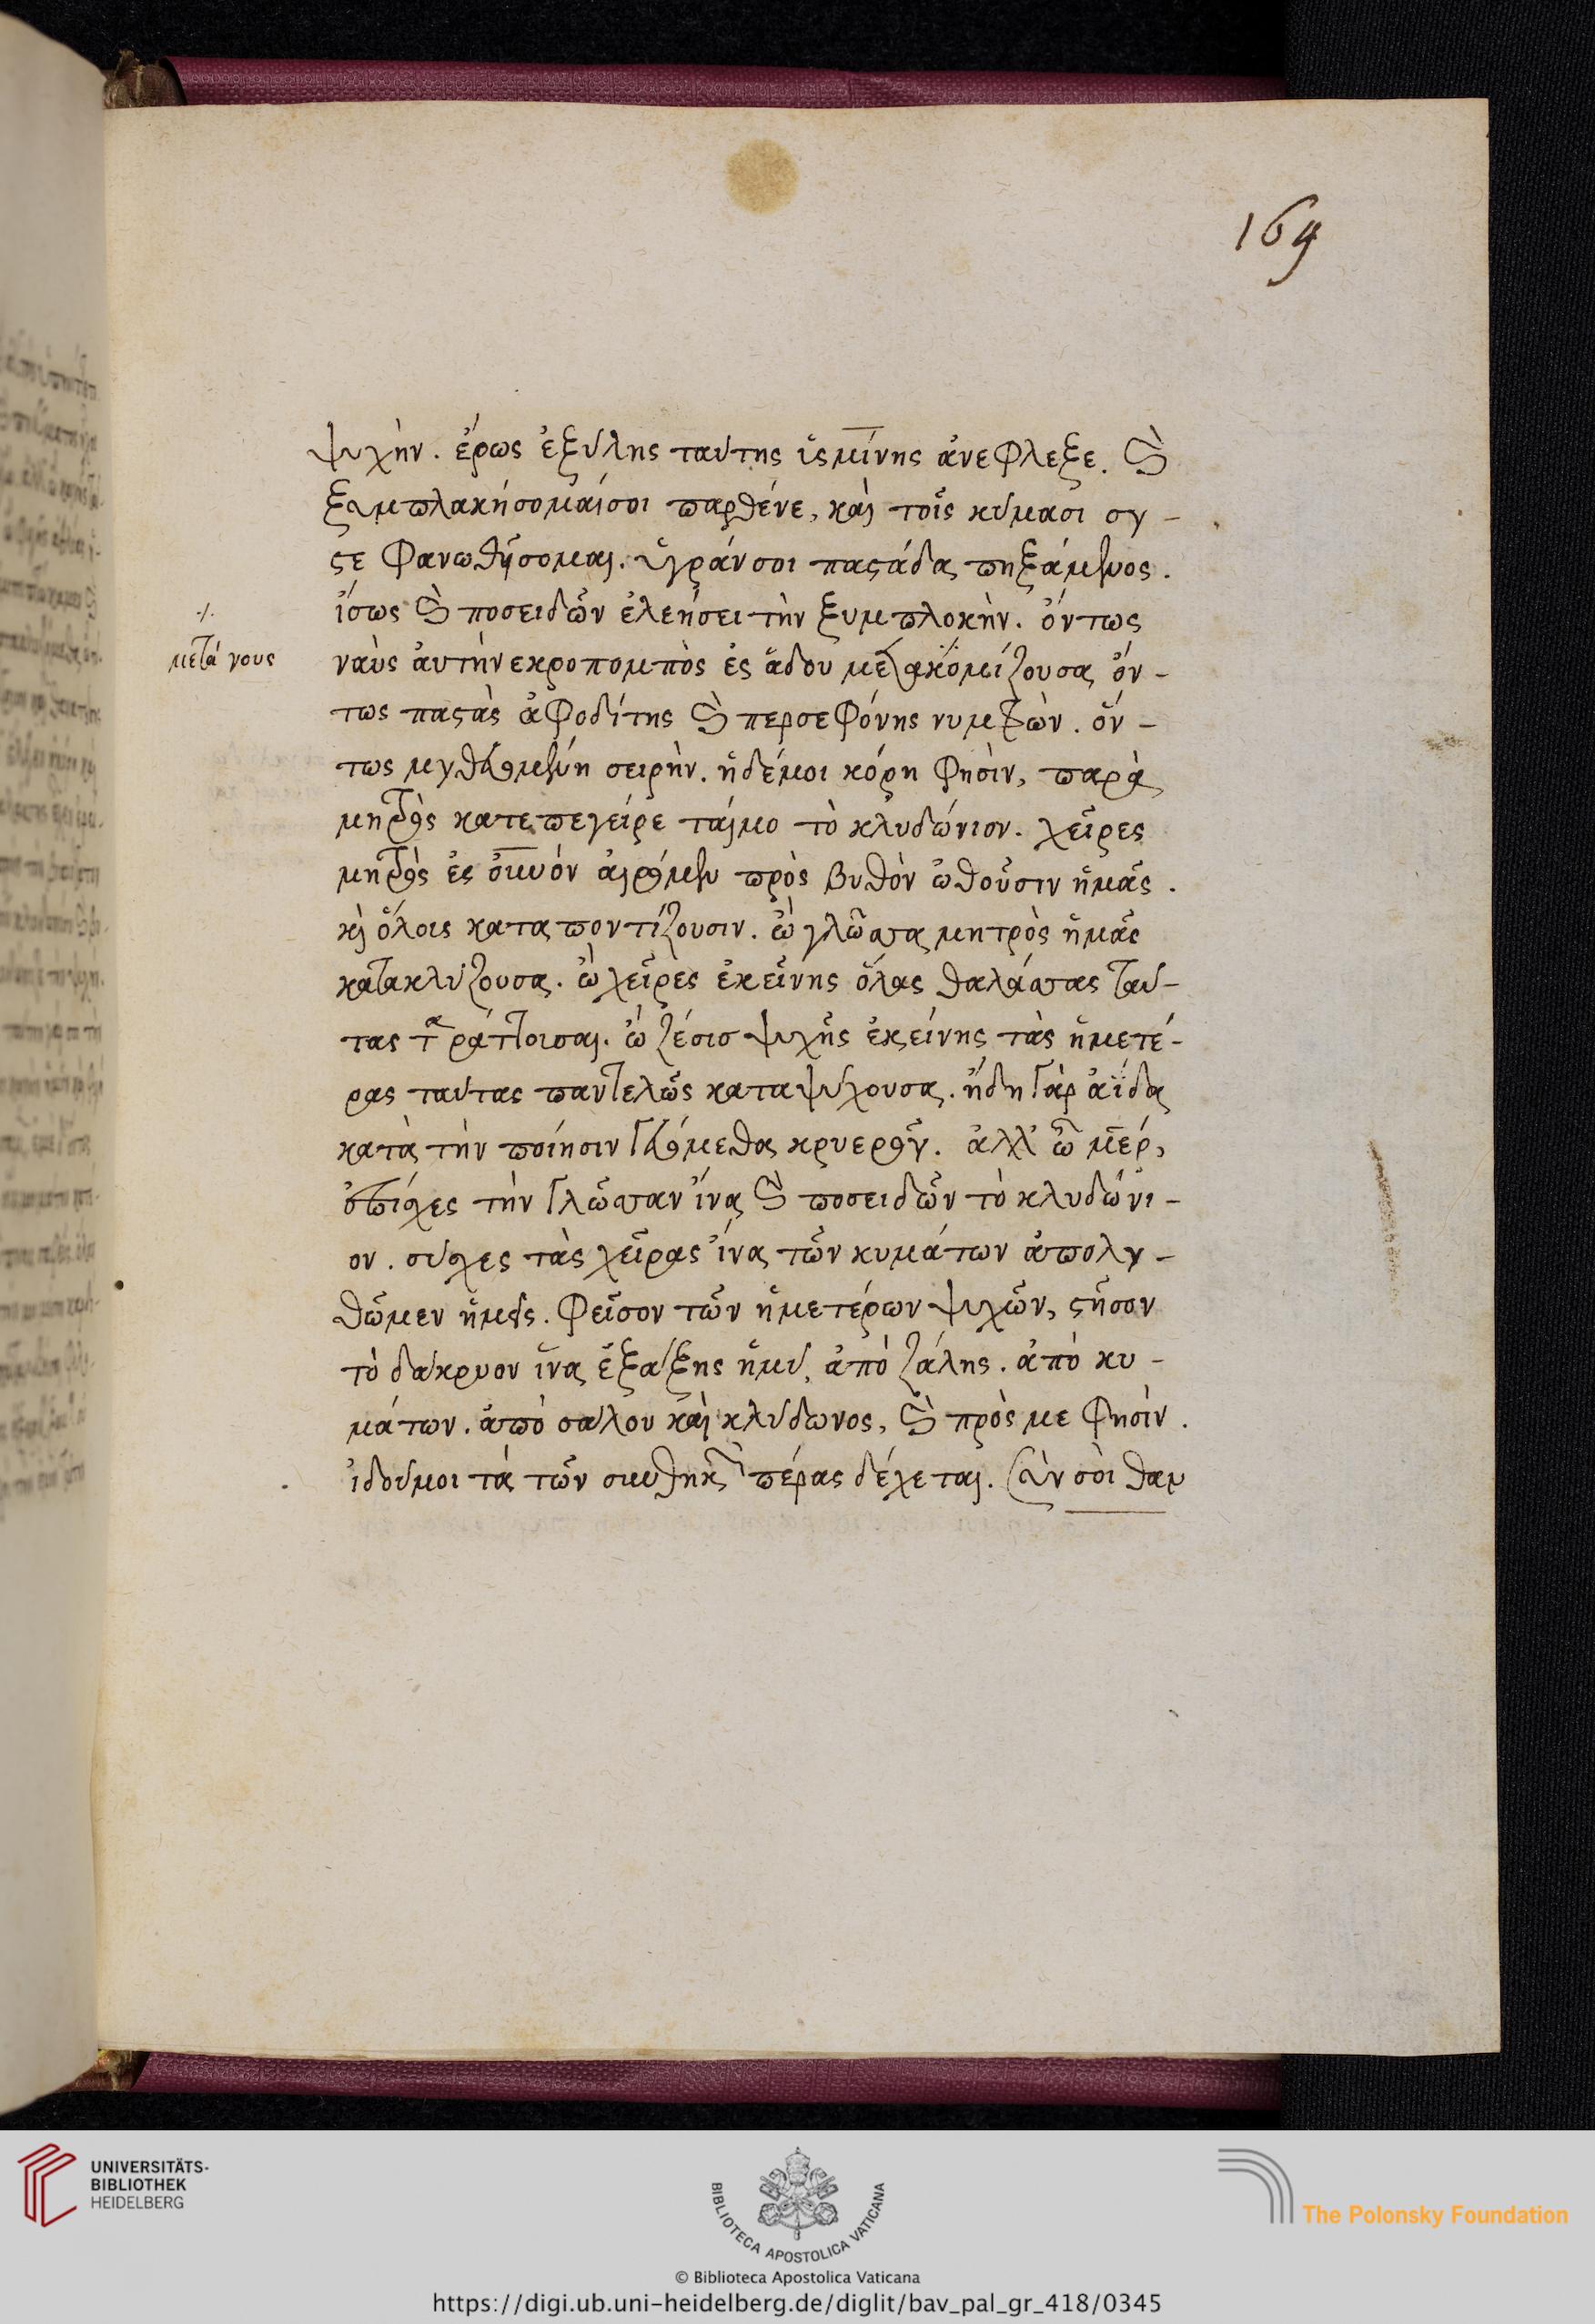 169
ψυχὴν. ἔρως ἐξύλης ταύτης ἰσμίνης ἀνεφλεξε. καὶ
ξυμπλακήσομαίσοι παρθένε, καὶ τοῖς κύμασι συ-
στεφανωθήσομαι. ὑγράν σοι παστάδα πηξάμενος.
ἴσως καὶ ποσειδῶν ἐλεήσει τὴν ξυμπλοκὴν. ὄντως
μετά νους
ναὺς ἁυτὴ νεκροπομπὸς ἐς ἅδου μετακομίζουσα ὄν-
τως παστὰς ἀφοδίτης καὶ περσεφόνης νυμφὼν. ὄν-
τως μυθευομένη σειρὴν. ἡδέμοι κόρη φησὶν, παρὰ
μητρὸς κατεπεγείρεταίμο τὸ κλυδώνιον. χεῖρες
μητρὸς ἐς οὐρανὸν αἰρόμεναι πρὸς βυθὸν ὠθοῦσιν ἡμᾶς.
καὶ ὅλοις καταποντίζουσιν. ὦ γλῶττα μητρὸς ἡμᾶς
κατακλύζουσα. ὦ χεῖρες ἐκείνης ὅλας θαλάττας ταύ-
τας ταράττοισαι. ὦ ζέσισ ψυχῆς ἐκείνης τὰς ἡμετέ-
ρας ταύτας παντελῶς καταψύχουσα. ἤδη γὰρ ἀΐδα
κατὰ τὴν ποίησιν γευόμεθα κρυεροῦ. ἀλλ' ὦ μῆτερ,
ἐπίσχες τὴν γλῶτταν ἵνα καὶ ποσειδῶν τὸ κλυδώνι-
ον. σύσχες τὰς χεῖρας ἵνα τῶν κυμάτων ἀπολυ-
θῶμεν ἡμεῖς. φεῖσον τῶν ἡμετέρων ψυχῶν, στῆσον
τὸ δάκρυον ἵνα ἐξάξης ἡμᾶς, ἀπὸ ζάλης. ἀπὸ κυ-
μάτων. ἀπὸ σάλου καὶ κλύδωνος, καὶ πρὸς με φησὶν.
ἰδούμοι τὰ τῶν συνθηκῶν πέρας δέχεται. σὺν σοὶ θαν
UNIVERSITÄTS-
BIBLIOTHEK
HEIDELBERG
BIBLIOTECA APOSTOLICA VATICANA
The Polonsky Foundation
© Biblioteca Apostolica Vaticana
https://digi.ub.uni-heidelberg.de/diglit/bav_pal_gr_418/0345